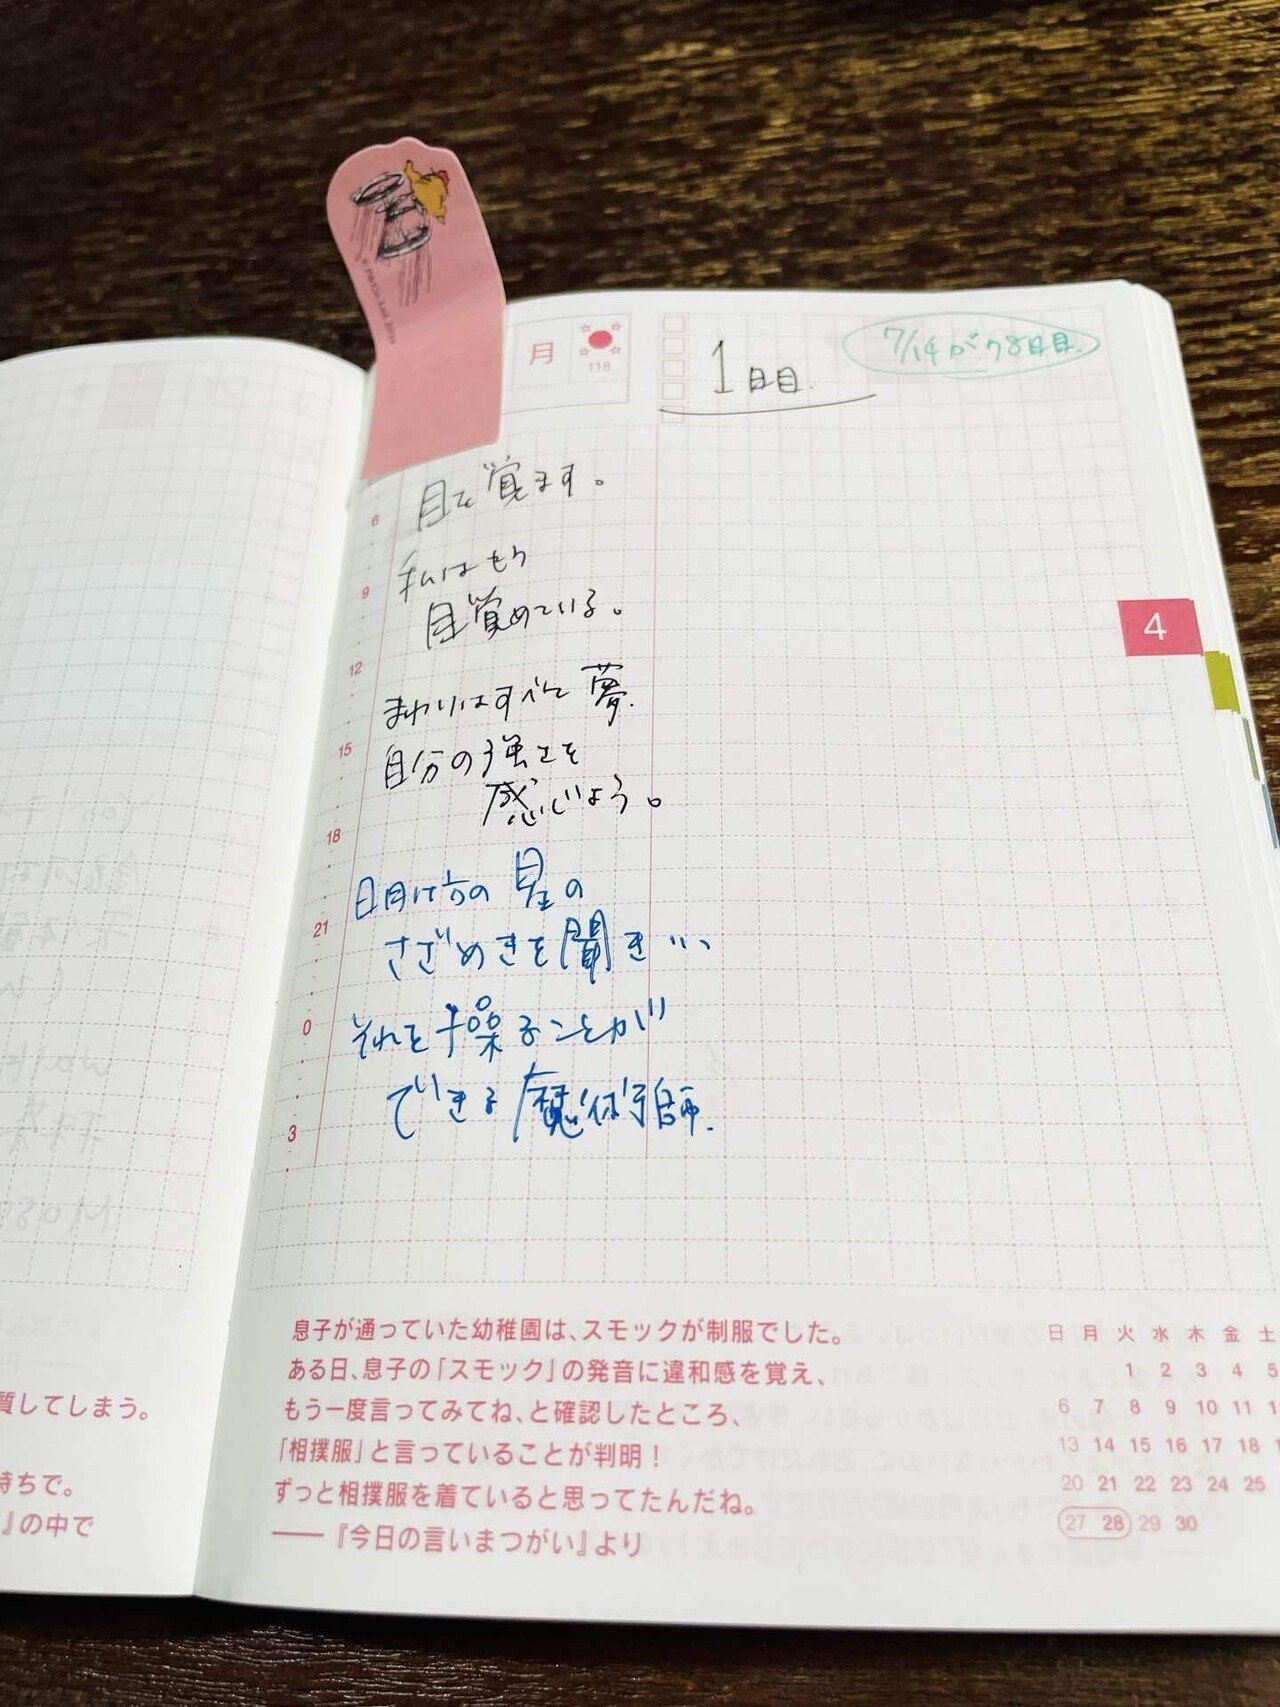 月
118
1日目.
7/14が78日目.
目を覚ます。
私はもう
目覚めている。
まわりはすべて夢.
自分の強さを
感じよう。
明け方の星の
ざざめきを聞き…
それを操ることが
できる魔術師.
6
9
12
15
18
21
0
3
4
息子が通っていた幼稚園は、スモックが制服でした。
ある日、息子の「スモック」の発音に違和感を覚え、
もう一度言ってみてね、と確認したところ、
「相撲服」と言っていることが判明！
ずっと相撲服を着ていると思ってたんだね。
——『今日の言いまつがい』より
日 月 火 水 木 金 土
1 2 3 4 5
6 7 8 9 10 11
13 14 15 16 17 18
20 21 22 23 24 25
27 28 29 30
質してしまう。
持ちで。
』の中で